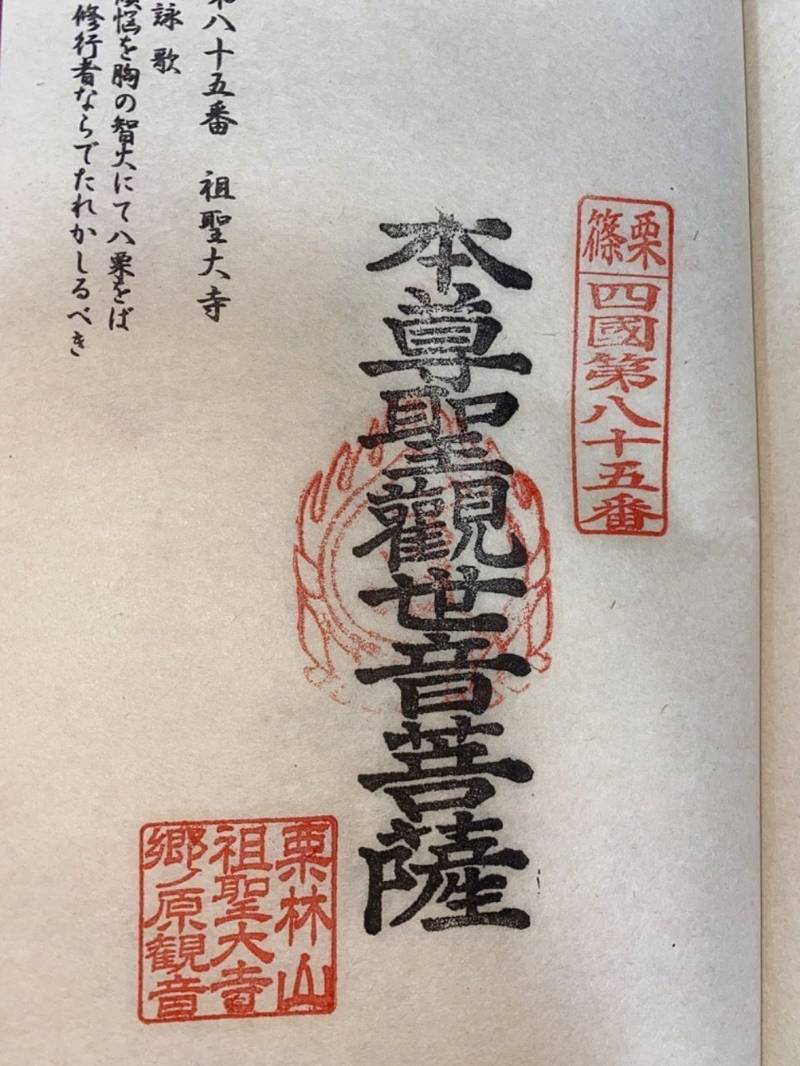 篠栗
四國第八十五番
本尊聖觀世音菩薩
栗林山
祖聖大寺
郷ノ原観音
第八十五番 祖聖大寺
詠歌
煩悩を胸の智火にて八栗をば
修行者ならでたれかしるべき